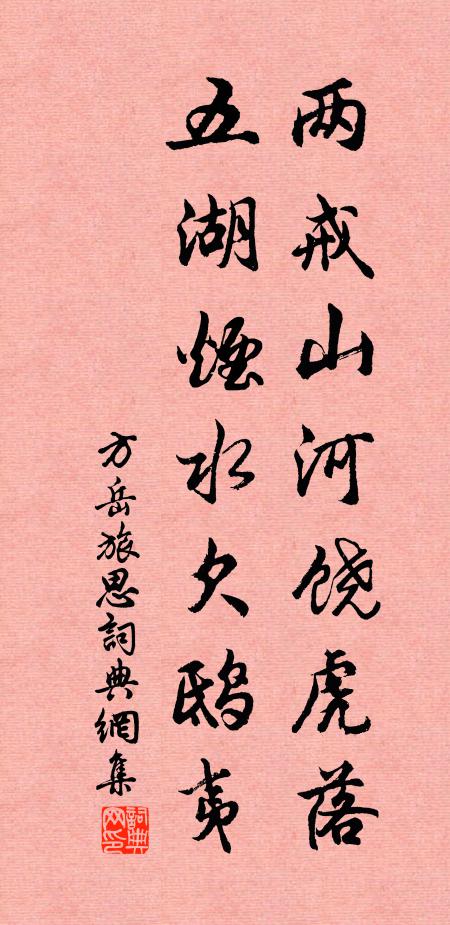 两戒山河饶虎落
五湖烟水欠鸱夷
方岳旅思詞典網集
詞典网印